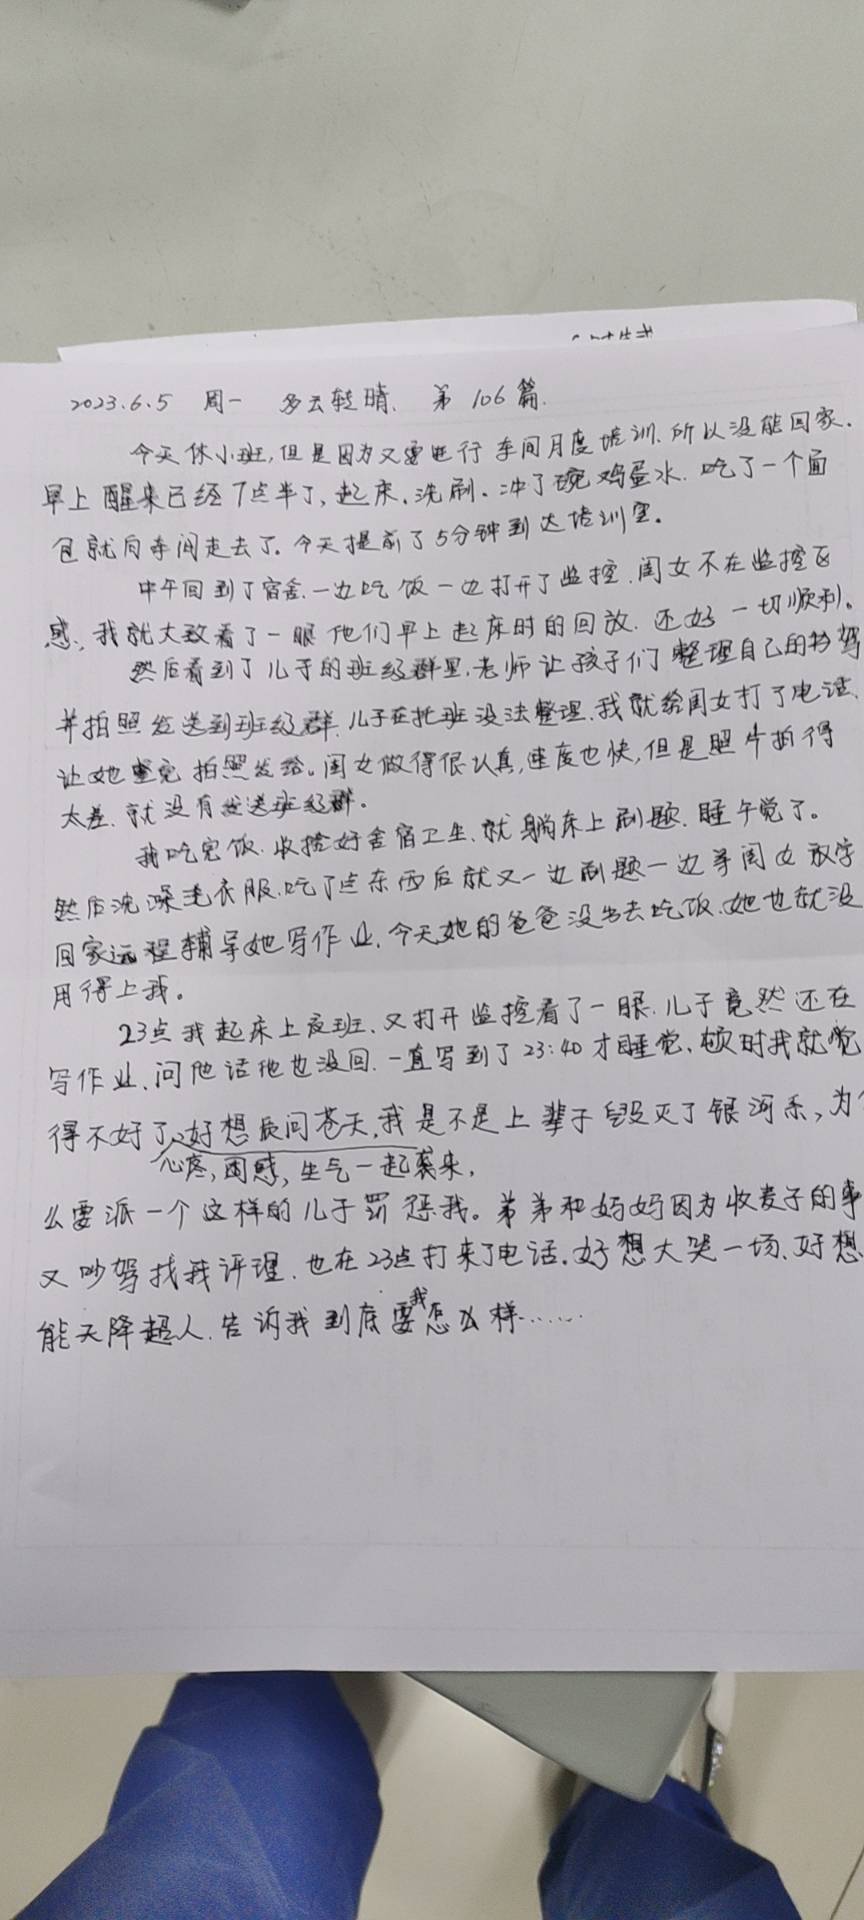 2023.6.5 周一 多云转晴. 第106篇.
今天休小班,但是因为又要进行车间月度培训.所以没能回家.
早上醒来已经7点半了,起床.洗刷.冲了碗鸡蛋水.吃了一个面
包就向车间走去了.今天提前了5分钟到达培训室。
中午回到了宿舍.一边吃饭一边打开了监控.闺女不在监控区
域、我就大致看了一眼他们早上起床时的回放.还好一切顺利。
然后看到了儿子的班级群里.老师让孩子们整理自己的书驾
并拍照发送到班级群.儿子在托班没法整理.我就给闺女打了电话.
让她整完拍照发给。闺女做得很认真,速度也快,但是照片拍得
太差.就没有发送班级群。
我吃完饭.收拾好舍宿卫生.就躺床上刷题.睡午觉了。
然后洗澡洗衣服.吃了点东西后就又一边刷题一边等闺女放学
回家远程辅导她写作业.今天她的爸爸没出去吃饭.她也就没
用得上我。
23点我起床上夜班.又打开监控看了一眼.儿子竟然还在
写作业.问他话他也没回.一直写到了23:40才睡觉.顿时我就觉
得不好了.好想质问苍天,我是不是上辈子毁灭了银河系,为
心疼,困惑,生气一起袭来,
么要派一个这样的儿子罚惩我。弟弟和妈妈因为收麦子的事
又吵驾找我评理.也在23点打来了电话.好想大哭一场.好想
能天降超人.告诉我到底要我怎么样......